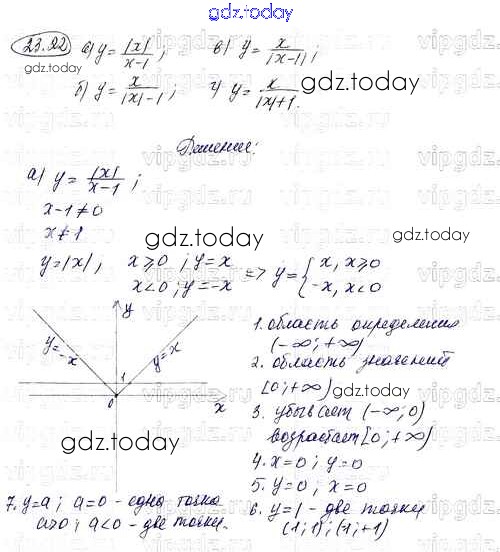 gdz.today
23.22 а) y = |x|/x-1 ; в) y = x/|x-1| ;
gdz.today
б) y = x/|x|-1 ; г) y = x/|x|+1.
Решение:
а) y = |x|/x-1 ;
x-1≠0
x≠1
gdz.today
gdz.today
y=|x|, x≥0 ; y=x => y={x, x≥0
x<0 ; y=-x -x, x<0
y
y=-x
y=x
1
0
x
1. область определения
(-∞; +∞)
2. область значений
[0; +∞)
gdz.today
3. убывает (-∞; 0)
возрастает [0; +∞)
gdz.today
4. x=0 ; y=0
5. y=0 ; x=0
6. y=1 - две точки
(1;1) ; (1;+1)
7. y=a ; a=0 - одна точка
a>0 ; a<0 - две точки.
gdz.today